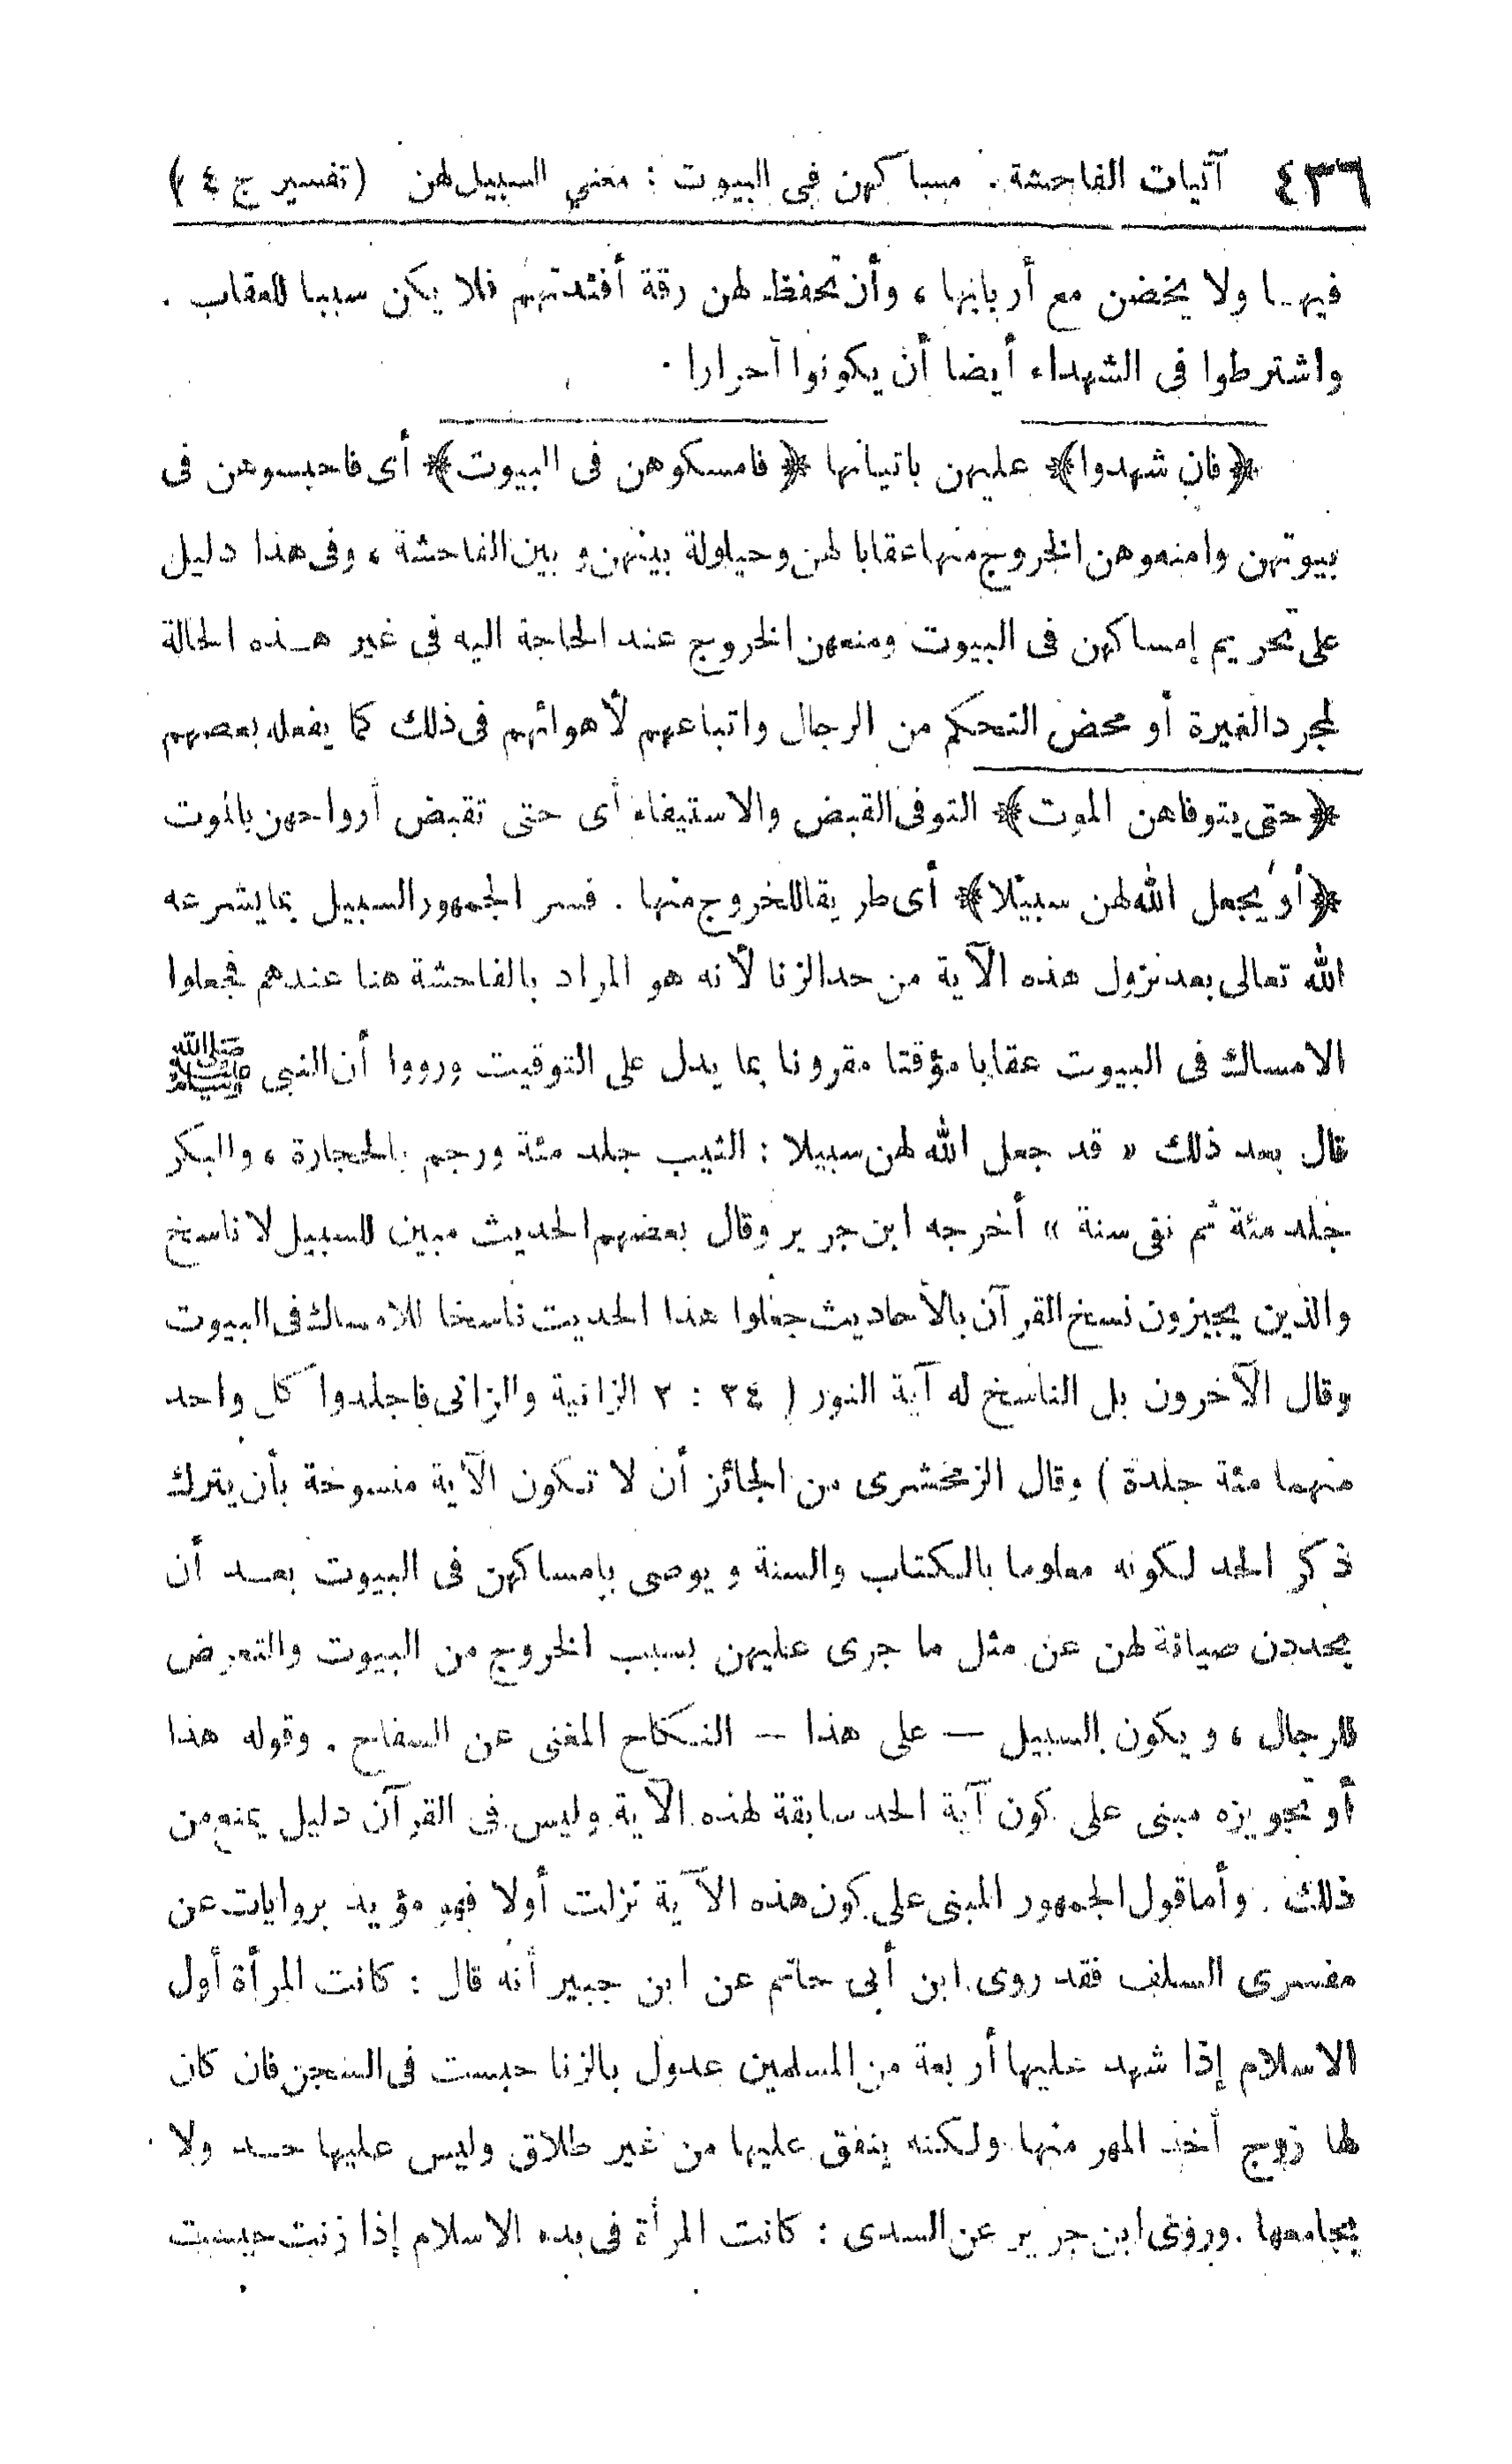 ٤٣٦ آتيات الفاحشة. مساكهن فى البيوت : معنى السبيل لهن (تفسير ج ٤)
فيها ولا يخضن مع أربابها ، وأن تحفظ لهن رقة أفئدتهم فلا يكن سببا للعقاب .
واشترطوا فى الشهداء أيضا أن يكونوا أحرارا .
﴿فان شهدوا﴾ عليهن باتيانها ﴿فامسكوهن فى البيوت﴾ أى فاحبسوهن فى
بيوتهن وامنعوهن الخروج منها عقابا لهن وحيلولة بينهن و بين الفاحشة ، وفى هذا دليل
على تحريم إمساكهن فى البيوت ومنعهن الخروج عند الحاجة اليه فى غير هذه الحالة
لمجرد الغيرة أو محض التحكم من الرجال واتباعهم لأهوائهم فى ذلك كما يفعله بعضهم
﴿حتى يتوفاهن الموت﴾ التوفى القبض والاستيفاء أى حتى تقبض أرواحهن بالموت
﴿أو يجعل الله لهن سبيلا﴾ أى طريقا للخروج منها . فسر الجمهور السبيل بما يشرعه
الله تعالى بعد نزول هذه الآية من حد الزنا لأنه هو المراد بالفاحشة هنا عندهم فجعلوا
الامساك فى البيوت عقابا مؤقتا مقرونا بما يدل على التوقيت ورووا أن النبى ﷺ
قال بعد ذلك « قد جعل الله لهن سبيلا : الثيب جلد مئة ورجم بالحجارة ، والبكر
جلد مئة ثم نفى سنة » أخرجه ابن جرير وقال بعضهم الحديث مبين للسبيل لا ناسخ
والذين يجيزون نسخ القرآن بالأحاديث جعلوا هذا الحديث ناسخا للامساك فى البيوت
وقال الآخرون بل الناسخ له آية النور ( ٢٤ : ٢ الزانية والزانى فاجلدوا كل واحد
منهما مئة جلدة ) وقال الزمخشرى من الجائز أن لا تكون الآية منسوخة بأن يترك
ذكر الحد لكونه معلوما بالكتاب والسنة و يوصى بإمساكهن فى البيوت بعد أن
يحددن صيانة لهن عن مثل ما جرى عليهن بسبب الخروج من البيوت والتعرض
للرجال ، و يكون السبيل — على هذا — النكاح المغنى عن السفاح . وقوله هذا
أو تجويزه مبنى على كون آية الحد سابقة لهذه الآية وليس فى القرآن دليل يمنع من
ذلك . وأما قول الجمهور المبنى على كون هذه الآية نزلت أولا فهو مؤيد بروايات عن
مفسرى السلف فقد روى ابن أبى حاتم عن ابن جبير أنه قال : كانت المرأة أول
الاسلام إذا شهد عليها أربعة من المسلمين عدول بالزنا حبست فى السجن فان كان
لها زوج أخذ المهر منها ولكنه ينفق عليها من غير طلاق وليس عليها حد ولا
يجامعها . وروى ابن جرير عن السدى : كانت المرأة فى بدء الاسلام إذا زنت حبست